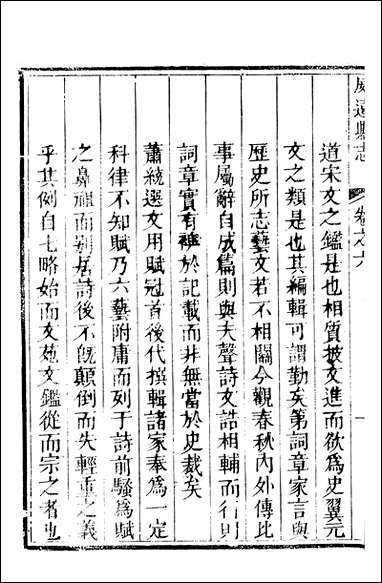 威遠縣志
卷之六
一
道宋文之鑑是也相質披文進而欲為史翼元
文之類是也其編輯可謂勤矣第詞章家言與
歷史所志藝文若不相關今觀春秋內外傳比
事屬辭自成篇則與夫聲詩文誥相輔而行則
詞章實有裨於記載而非無當於史裁矣
蕭統選文用賦冠首後代撰輯諸家奉為一定
科律不知賦乃六藝附庸而列于詩前騷為賦
之鼻祖而別居詩後不旣顛倒而失輕重之義
乎其例自七略始而文苑文鑑從而宗之者也